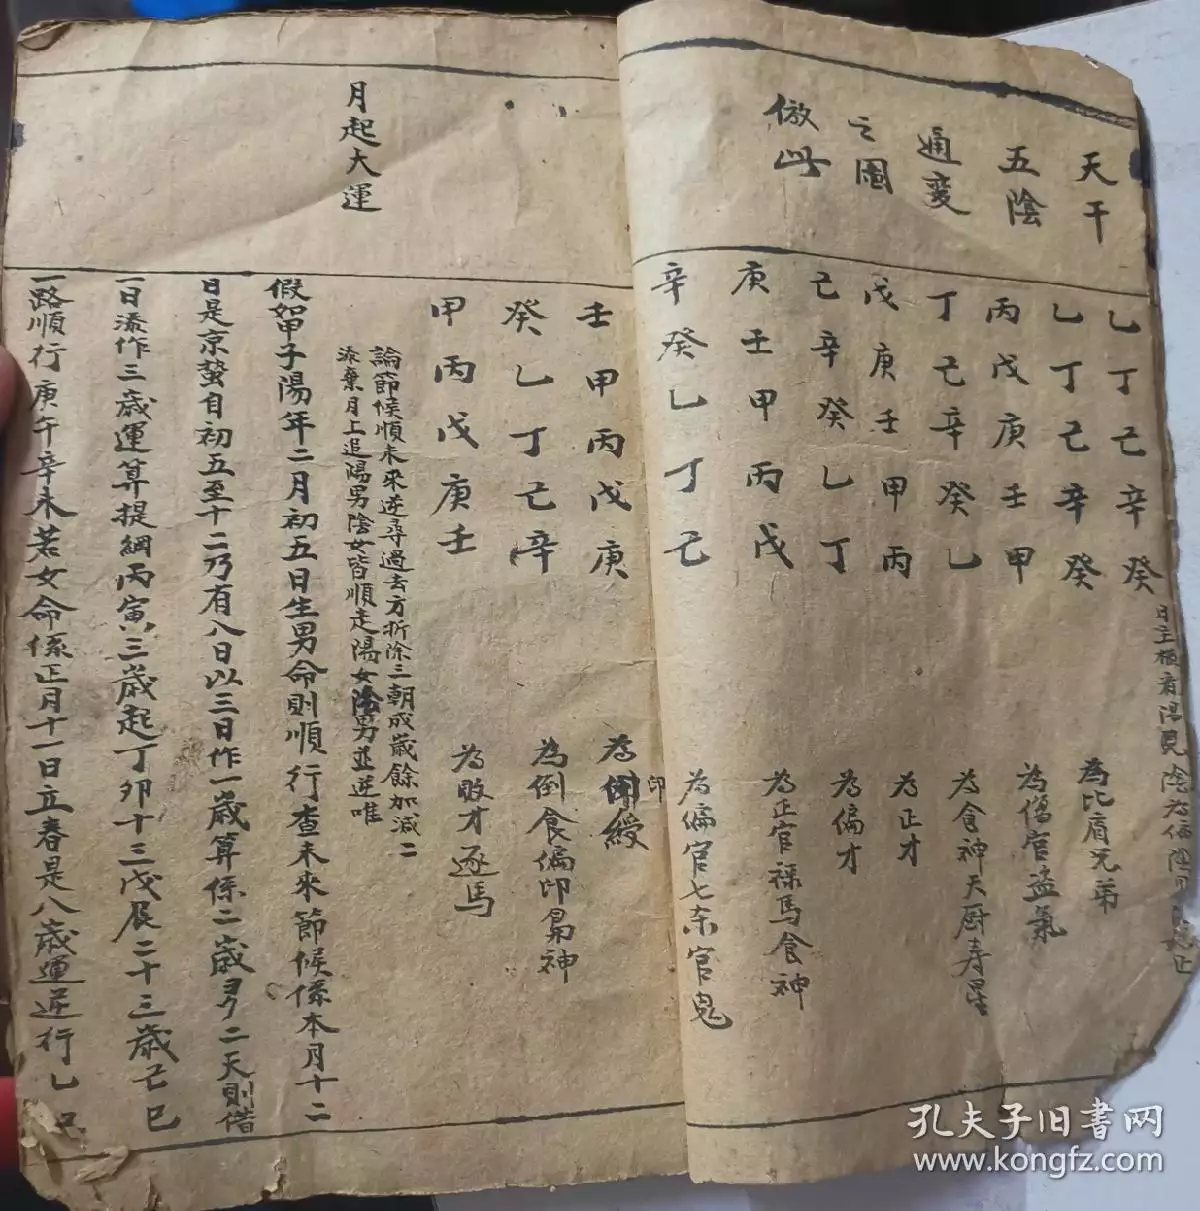 天干
五陰
通变
之圖
倣此
乙丁己辛癸
乙丁己辛癸 為比肩兄弟
丙戊庚壬甲 為傷官盗氣
丁己辛癸乙 為食神天厨寿星
戊庚壬甲丙 為正才
己辛癸乙丁 為偏才
庚壬甲丙戊 為正官禄馬食神
辛癸乙丁己 為偏官七杀官鬼
壬甲丙戊庚 為印綬
癸乙丁己辛 為倒食偏印梟神
甲丙戊庚壬 為敗才逐馬
月起大運
論節候順未來逆尋過去方折除三朝成歲餘加減二
添棄月上追陽男陰女皆順走陽女陰男並逆唯
假如甲子陽年二月初五日生男命則順行查未來節候係本月十二
日是京蟄自初五至十二乃有八日以三日作一歲算係二歲又欠二天則借
一日添作三歲運算提綱丙寅三歲起丁卯十三戊辰二十三歲己巳
一路順行庚午辛未若女命係正月十一日立春是八歲運逆行乙丑
孔夫子旧書网
www.kongfz.com